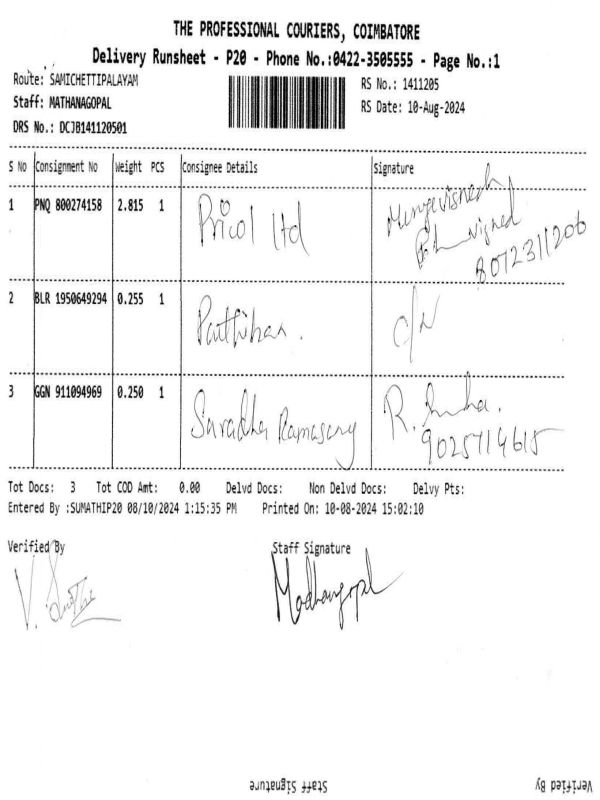 THE PROFESSIONAL COURIERS, COIMBATORE
Delivery Runsheet - P20 - Phone No.:0422-3505555 - Page No.:1
Route: SAMICHETTIPALAYAM
RS No.: 1411205
Staff: MATHANAGOPAL
RS Date: 10-Aug-2024
DRS No.: DCJB141120501
S No Consignment No Weight PCS Consignee Details Signature
1 PNQ 800274158 2.815 1 Pricol ltd
8072311206
2 BLR 1950649294 0.255 1 Parthiban. c/N
3 GGN 911094969 0.250 1 Saradha Ramasamy R.
9025714615
Tot Docs: 3 Tot COD Amt: 0.00 Delvd Docs: Non Delvd Docs: Delvy Pts:
Entered By :SUMATHIP20 08/10/2024 1:15:35 PM Printed On: 10-08-2024 15:02:10
Verified By Staff Signature
V. Madhangopl
Staff Signature Verified By